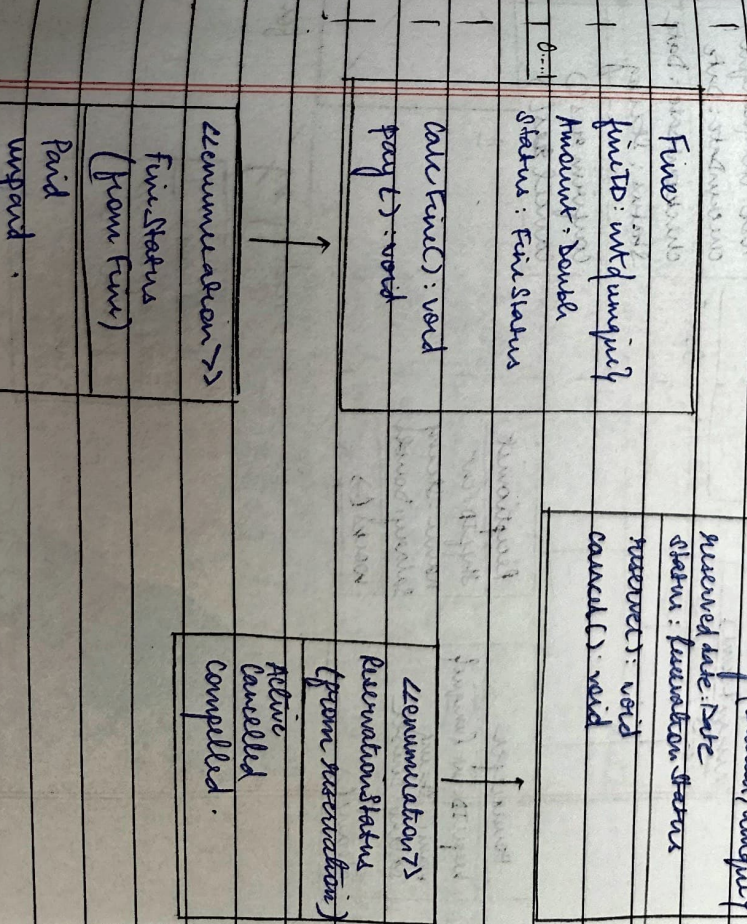 0....1
Fine
fineID: int{unique}
Amount: Double
Status: FineStatus
CalcFine(): void
pay(): void
<<enumeration>>
FineStatus
(from Fine)
Paid
unpaid.
reserveddate: Date
Status: Reservation Status
reserve(): void
cancel(): void
<<enumeration>>
ReservationStatus
(from reservation)
Active
Cancelled
compelled.